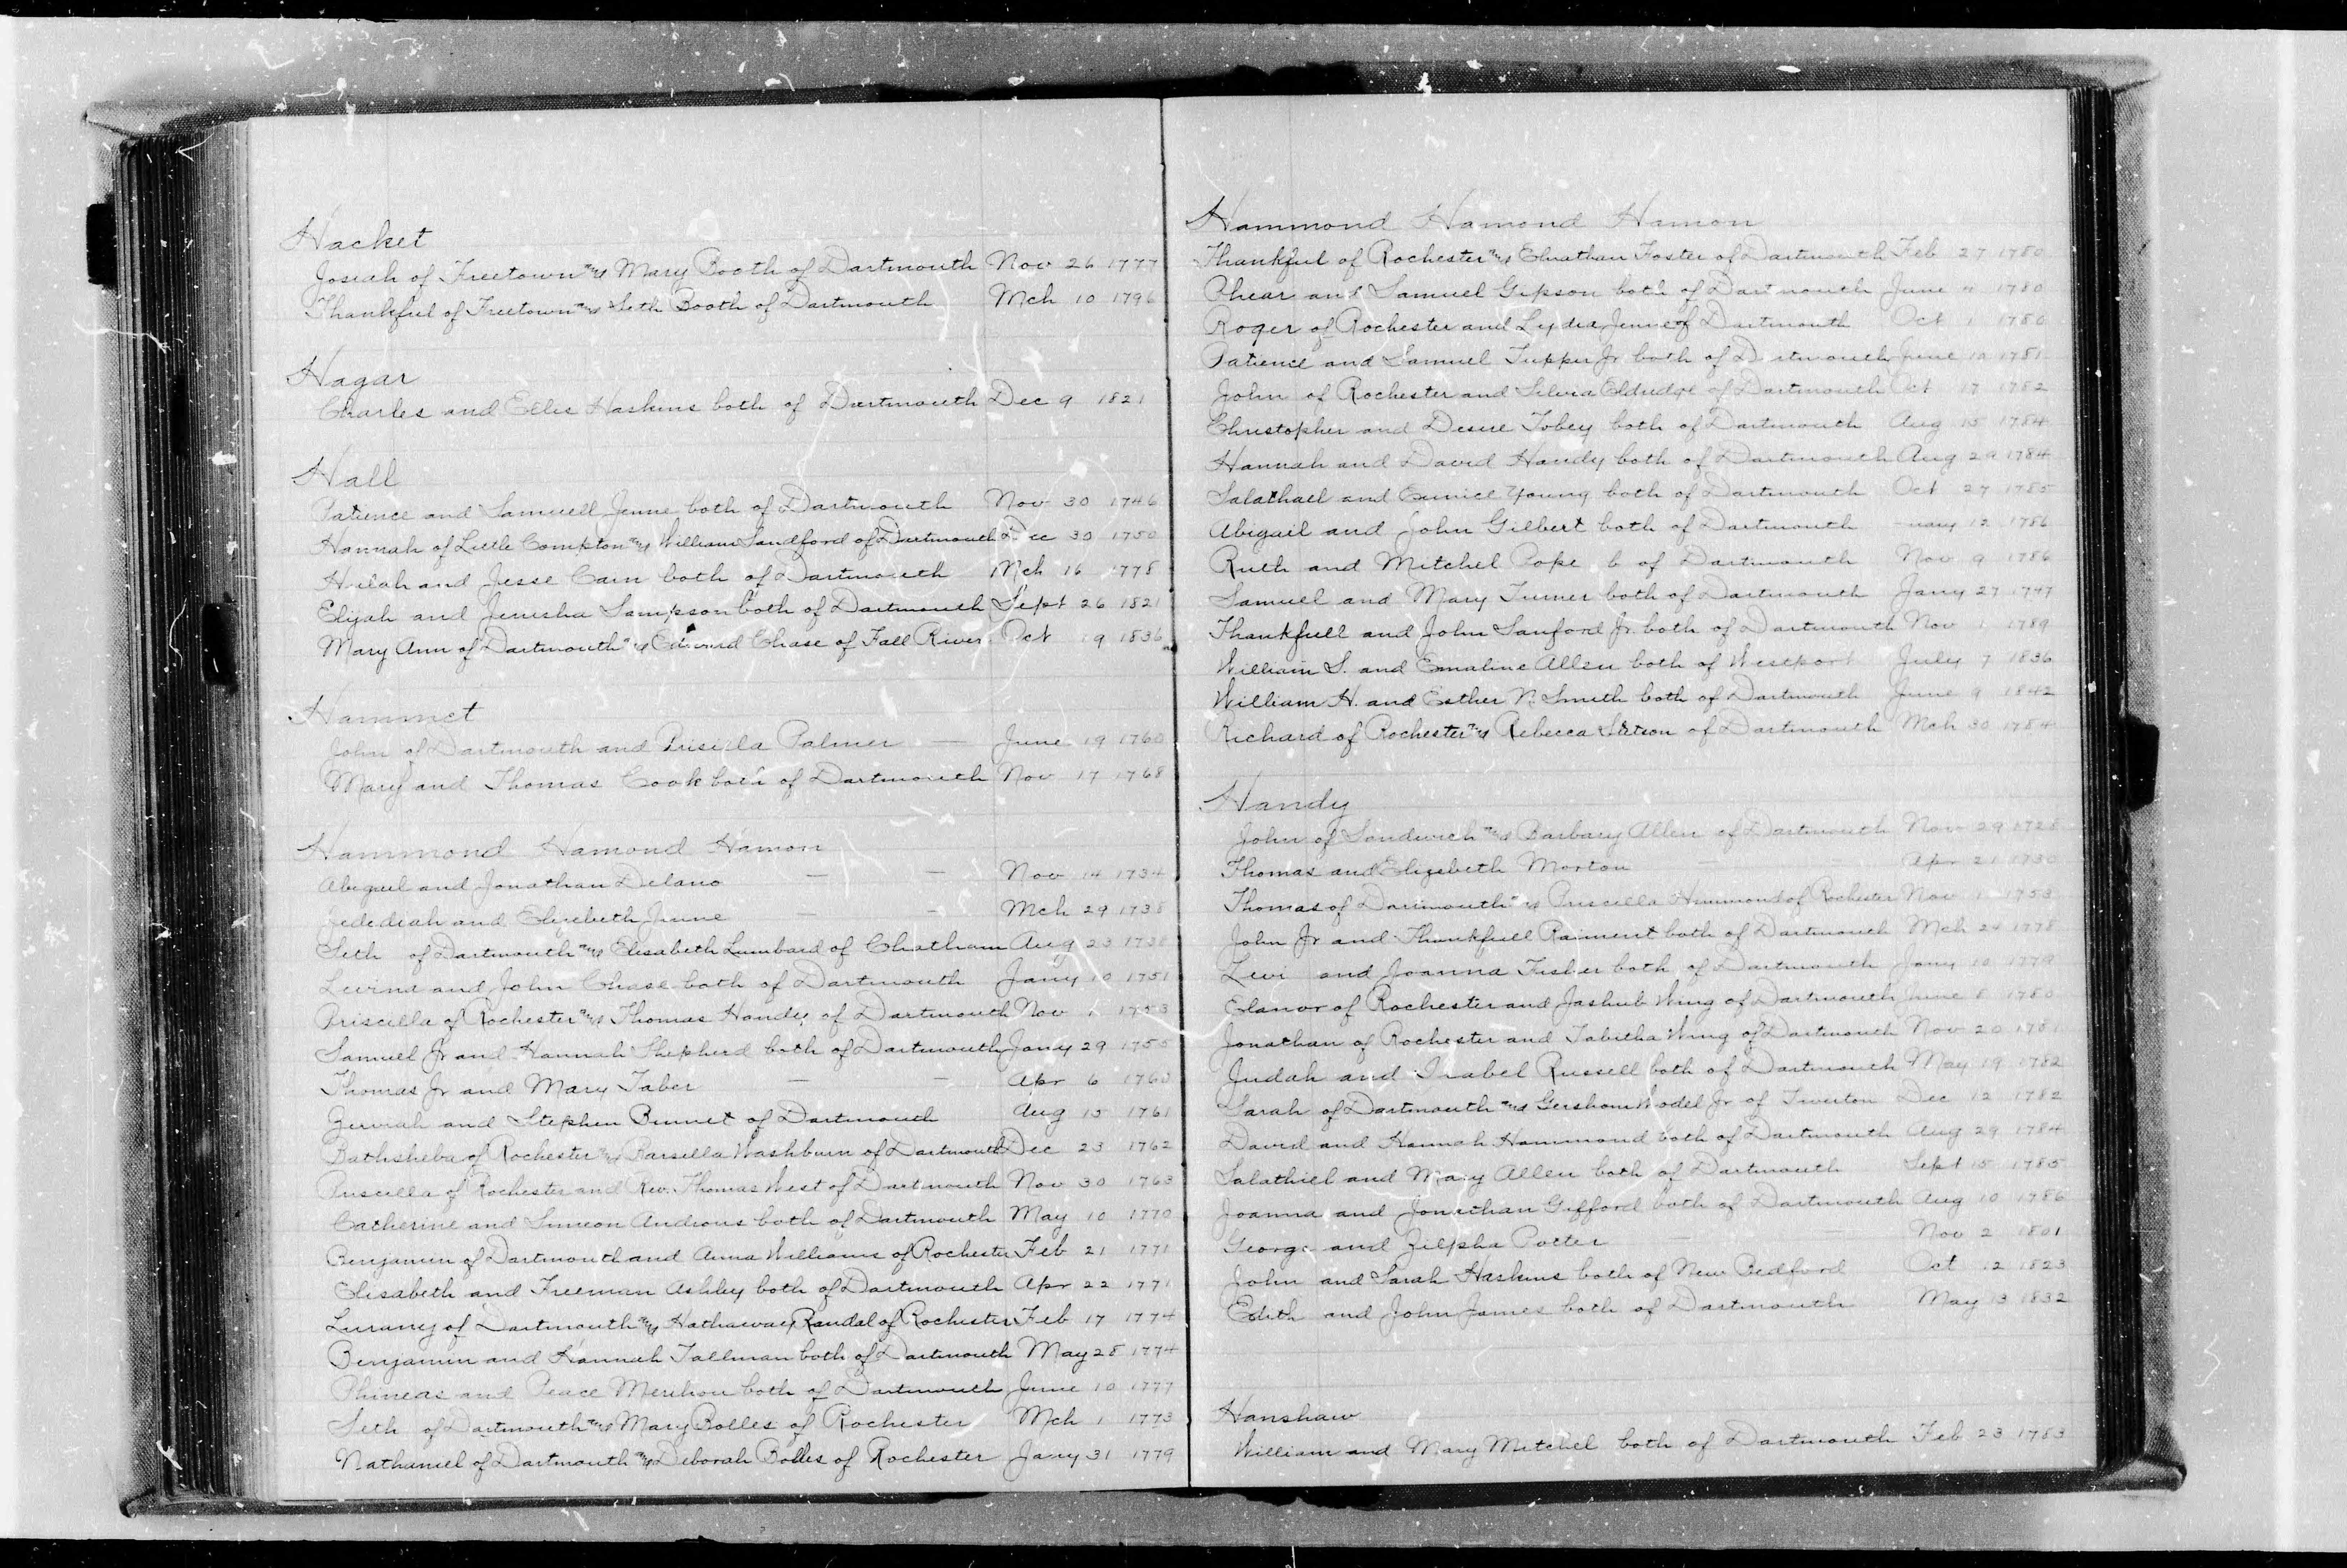 Hacket
Josiah of Freetown and Mary Booth of Dartmouth Nov 26 1777
Thankful of Freetown and Seth Booth of Dartmouth Mch 10 1796
Hagar
Charles and Ellis Haskins both of Dartmouth Dec 9 1821
Hall
Patience and Samuell Jenne both of Dartmouth Nov 30 1746
Hannah of Little Compton and William Sandford of Dartmouth Dec 30 1750
Hilah and Jesse Cain both of Dartmouth Mch 16 1778
Elijah and Jerusha Sampson both of Dartmouth Sept 26 1821
Mary Ann of Dartmouth and Edward Chase of Fall River Oct 19 1836
Hammet
John of Dartmouth and Prisilla Palmer — June 19 1760
Mary and Thomas Cook both of Dartmouth Nov 17 1768
Hammond Hamond Hamon
Abigail and Jonathan Delano — — Nov 14 1734
Jedediah and Elizebeth Jenne — — Mch 29 1738
Seth of Dartmouth and Elisabeth Lumbard of Chatham Aug 23 1738
Levina and John Chase both of Dartmouth Jany 10 1751
Priscilla of Rochester and Thomas Handy of Dartmouth Nov 1 1753
Samuell Jr and Hannah Shepherd both of Dartmouth Jany 29 1755
Thomas Jr and Mary Taber — — Apr 6 1760
Zerviah and Stephen Bennet of Dartmouth Aug 15 1761
Bathsheba of Rochester and Parsella Washburn of Dartmouth Dec 23 1762
Priscilla of Rochester and Rev. Thomas West of Dartmouth Nov 30 1763
Catherine and Simeon Androus both of Dartmouth May 10 1770
Benjamin of Dartmouth and Anna Williams of Rochester Feb 21 1771
Elisabeth and Freeman Ashley both of Dartmouth Apr 22 1771
Luraney of Dartmouth and Hathaway Randal of Rochester Feb 17 1774
Benjamin and Hannah Tallman both of Dartmouth May 28 1774
Phineas and Peace Merihou both of Dartmouth June 10 1777
Seth of Dartmouth and Mary Bolles of Rochester Mch 1 1773
Nathaniel of Dartmouth and Deborah Bolles of Rochester Jany 31 1779
Hammond Hamond Hamon
Thankful of Rochester and Elnathan Foster of Dartmouth Feb 27 1780
Phear and Samuel Gipson both of Dartmouth June 4 1780
Roger of Rochester and Lydia Jenne of Dartmouth Oct 1 1786
Patience and Samuel Tupper Jr both of Dartmouth June 10 1781
John of Rochester and Silvia Eldredge of Dartmouth Oct 17 1782
Christopher and Desire Tobey both of Dartmouth Aug 15 1784
Hannah and David Handy both of Dartmouth Aug 29 1784
Salathaell and Eunice Young both of Dartmouth Oct 27 1785
Abigail and John Gilbert both of Dartmouth 12 1786
Ruth and Mitchel Pope b of Dartmouth Nov 9 1786
Samuel and Mary Turner both of Dartmouth Jany 27 1747
Thankfull and John Sanford Jr. both of Dartmouth Nov 1 1789
William S. and Emaline Allen both of Westport July 7 1836
William H. and Esther N. Smith both of Dartmouth June 9 1842
Richard of Rochester and Rebecca Stetson of Dartmouth Mch 30 1784
Handy
John of Sandwich and Barbary Allen of Dartmouth Nov 29 1728
Thomas and Elizebeth Morton — Apr 21 1730
Thomas of Dartmouth and Priscilla Hammond of Rochester Nov 1 1753
John Jr and Thankfull Raiment both of Dartmouth Mch 24 1778
Levi and Joanna Fisher both of Dartmouth Jany 10 1779
Elanor of Rochester and Jashub Wing of Dartmouth June 8 1780
Jonathan of Rochester and Tabitha Wing of Dartmouth Nov 20 1781
Judah and Isabel Russell both of Dartmouth May 19 1782
Sarah of Dartmouth and Gershom Wodel Jr of Tiverton Dec 12 1782
David and Hannah Hammond both of Dartmouth Aug 29 1784
Salathiel and Mary Allen both of Dartmouth Sept 15 1785
Joanna and Jonathan Gifford both of Dartmouth Aug 10 1786
George and Zilpha Potter — Nov 2 1801
John and Sarah Haskins both of New Bedford Oct 12 1823
Edith and John James both of Dartmouth May 13 1832
Hanshaw
William and Mary Mitchel both of Dartmouth Feb 23 1783